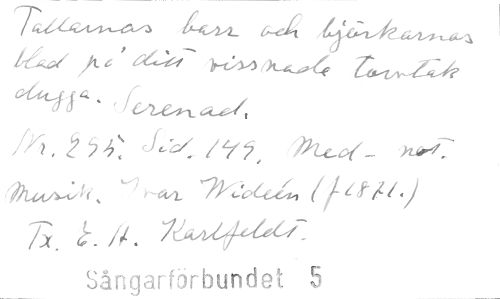 Tallarnas barr och björkarnas
blad på ditt vissnade torvtak
dugga. Serenad.
Nr. 295. Sid. 149. Med- not.
Musik. Ivar Widéen (f 1871.)
Tx. E. A. Karlfeldt.
Sångarförbundet 5